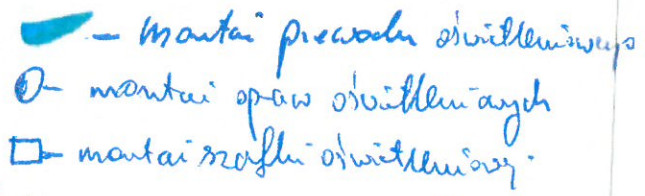 - montaż przewodu oświetleniowego
- montaż opraw oświetleniowych
- montaż szafki oświetleniowej.